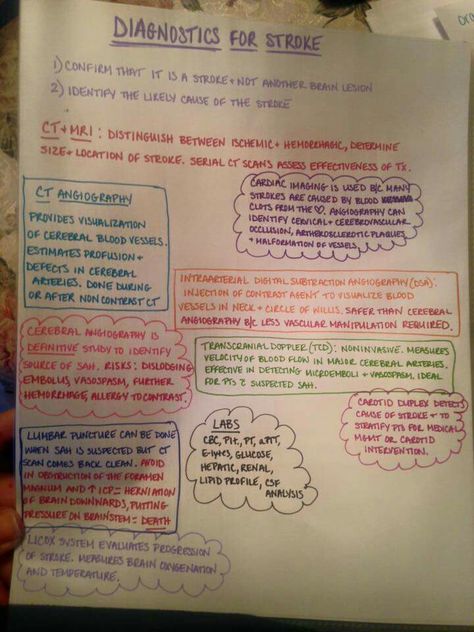 DIAGNOSTICS FOR STROKE
1) CONFIRM THAT IT IS A STROKE + NOT ANOTHER BRAIN LESION
2) IDENTIFY THE LIKELY CAUSE OF THE STROKE
CT + MRI : DISTINGUISH BETWEEN ISCHEMIC + HEMORRHAGIC, DETERMINE
SIZE + LOCATION OF STROKE. SERIAL CT SCANS ASSESS EFFECTIVENESS OF TX.
CT ANGIOGRAPHY
PROVIDES VISUALIZATION
OF CEREBRAL BLOOD VESSELS.
ESTIMATES PROFUSION +
DEFECTS IN CEREBRAL
ARTERIES. DONE DURING
OR AFTER NON CONTRAST CT
CARDIAC IMAGING IS USED B/C MANY
STROKES ARE CAUSED BY BLOOD
CLOTS FROM THE ♡. ANGIOGRAPHY CAN
IDENTIFY CERVICAL + CEREBROVASCULAR
OCCLUSION, ARTHEROSCLEROTIC PLAQUES
+ MALFORMATION OF VESSELS.
INTRAARTERIAL DIGITAL SUBTRACTION ANGIOGRAPHY (DSA):
INJECTION OF CONTRAST AGENT TO VISUALIZE BLOOD
VESSELS IN NECK + CIRCLE OF WILLIS. SAFER THAN CEREBRAL
ANGIOGRAPHY B/C LESS VASCULAR MANIPULATION REQUIRED.
CEREBRAL ANGIOGRAPHY IS
DEFINITIVE STUDY TO IDENTIFY
SOURCE OF SAH. RISKS: DISLODGING
EMBOLUS, VASOSPASM, FURTHER
HEMORRHAGE, ALLERGY TO CONTRAST.
TRANSCRANIAL DOPPLER (TCD): NONINVASIVE. MEASURES
VELOCITY OF BLOOD FLOW IN MAJOR CEREBRAL ARTERIES.
EFFECTIVE IN DETECTING MICROEMBOLI + VASOSPASM. IDEAL
FOR PTS c̄ SUSPECTED SAH.
CAROTID DUPLEX DETECTS
CAUSE OF STROKE + TO
STRATIFY PTS FOR MEDICAL
MGMT OR CAROTID
INTERVENTION.
LUMBAR PUNCTURE CAN BE DONE
WHEN SAH IS SUSPECTED BUT CT
SCAN COMES BACK CLEAN. AVOID
IN OBSTRUCTION OF THE FORAMEN
MAGNUM AND ↑ ICP = HERNIATION
OF BRAIN DOWNWARDS, PUTTING
PRESSURE ON BRAINSTEM = DEATH
LABS
CBC, Plt, PT, aPTT,
E-lytes, GLUCOSE,
HEPATIC, RENAL,
LIPID PROFILE, CSF
ANALYSIS
LICOX SYSTEM EVALUATES PROGRESSION
OF STROKE. MEASURES BRAIN OXYGENATION
AND TEMPERATURE.